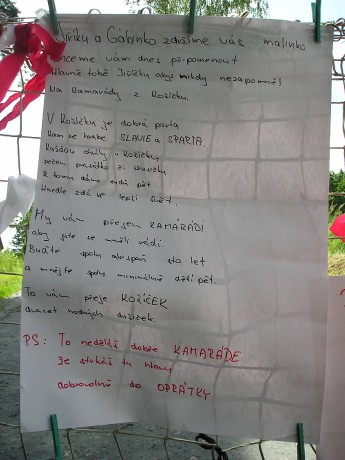 Jiříku a Gábinko zdržíme vás malinko
chceme vám dnes připomenout
hlavně tobě Jiříčku abys nikdy nezapomněl
na kamarády z Kozíčku.
V Kozíčku je dobrá parta
kam se hrabe SLAVIE a SPARTA.
Každou chvíli v Kozíčku
pečem prasátko
k tomu dáme
lepší svět.
My vám přejem KAMARÁDI
aby jste se měli rádi.
Buďte spolu aspoň sto let
a mějte spolu minimálně dětí pět.
To vám přeje KOZÍČEK
dvacet hodných dušiček.
PS: To neděláš dobře KAMARÁDE
že strkáš tu hlavu
dobrovolně do OPRÁTKY